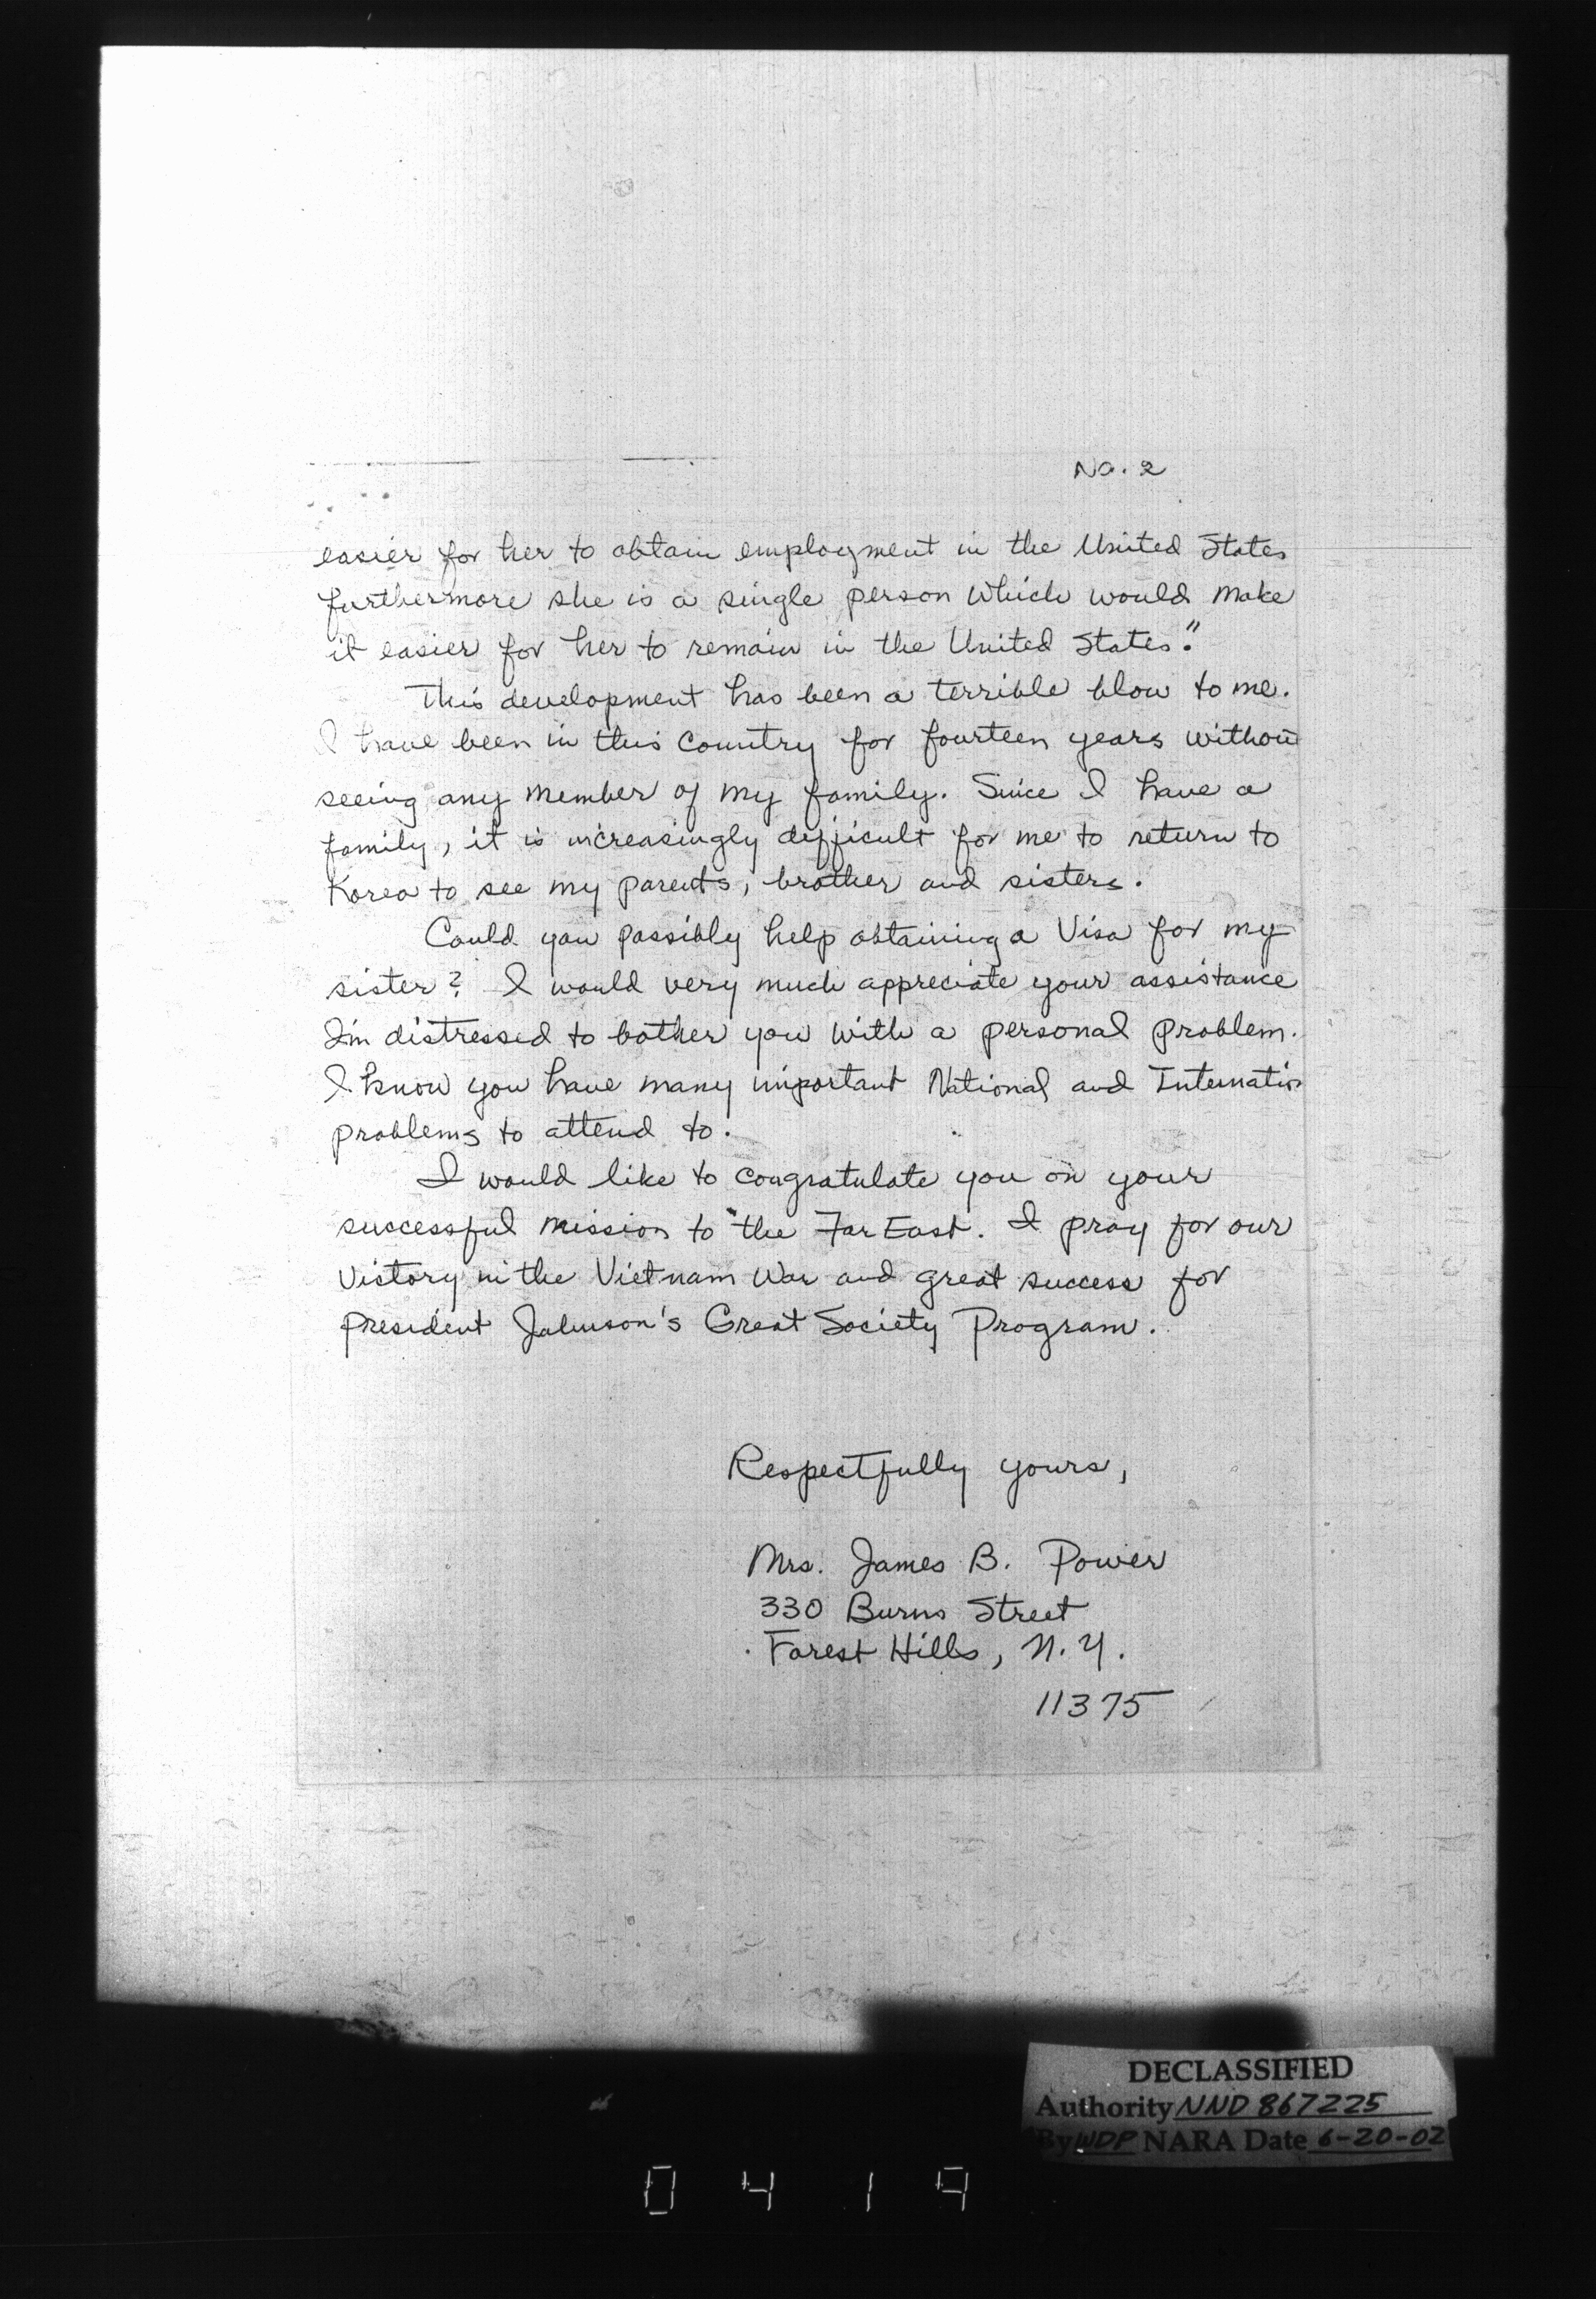 No. 2
easier for her to obtain employment in the United States
furthermore she is a single person which would make
it easier for her to remain in the United States."
This development has been a terrible blow to me.
I have been in this Country for fourteen years withou
seeing any member of my family. Since I have a
family, it is increasingly difficult for me to return to
Korea to see my parents, brother and sisters.
Could you possibly help obtaining a Visa for my
sister? I would very much appreciate your assistance
I'm distressed to bother you with a personal problem.
I know you have many important National and Internatio
problems to attend to.
I would like to congratulate you on your
successful mission to the Far East. I pray for our
Victory in the Vietnam War and great success for
President Johnson's Great Society Program.
Respectfully yours,
Mrs. James B. Power
330 Burns Street
Forest Hills, N.Y.
11375
DECLASSIFIED
Authority NND 867225
By WDP NARA Date 6-20-02
0419